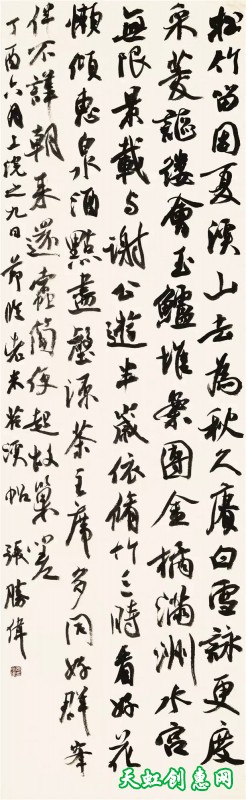 松竹留因夏溪山去為秋久賡白雪詠更度
采菱謳縷會玉鱸堆案團金橘滿洲水宮
無限景載与謝公遊半歲依脩竹三時看好花
懶傾惠泉酒點盡壑源茶主席多同好群峯
伴不譁朝來還蠹簡便起故巢嗟
丁酉六月上浣之九日節臨老米苕溪帖 張勝偉
天虹创意网